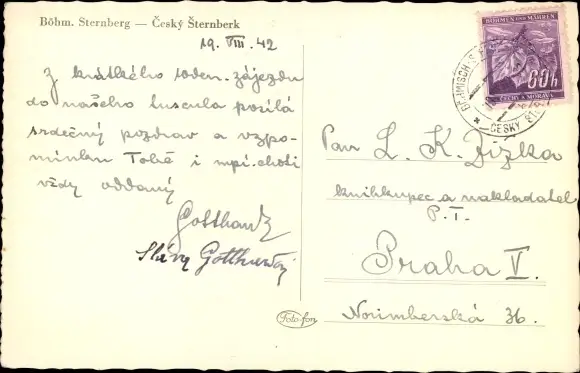 Böhm. Sternberg — Český Šternberk
19. VIII. 42
Z krátkého 10den. zájezdu
do našeho tuscula posílá
srdečný pozdrav a vzpo-
mínku Tobě i mpí. choti
vždy oddaný
Gotthard
Sláva
BÖHMEN UND MÄHREN
60h
ČECHY A MORAVA
BÖHMISCH S
ČESKÝ ŠT
Pan L. K. Žižka
knihkupec a nakladatel
P. T.
Praha V.
Norimberská 36.
Fotofon